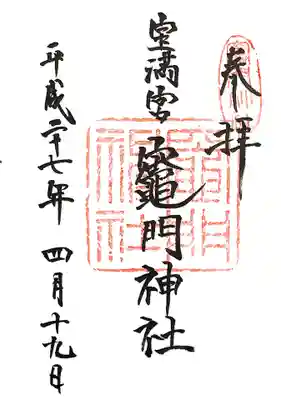 奉拝
宝満宮竈門神社
平成二十七年四月十九日